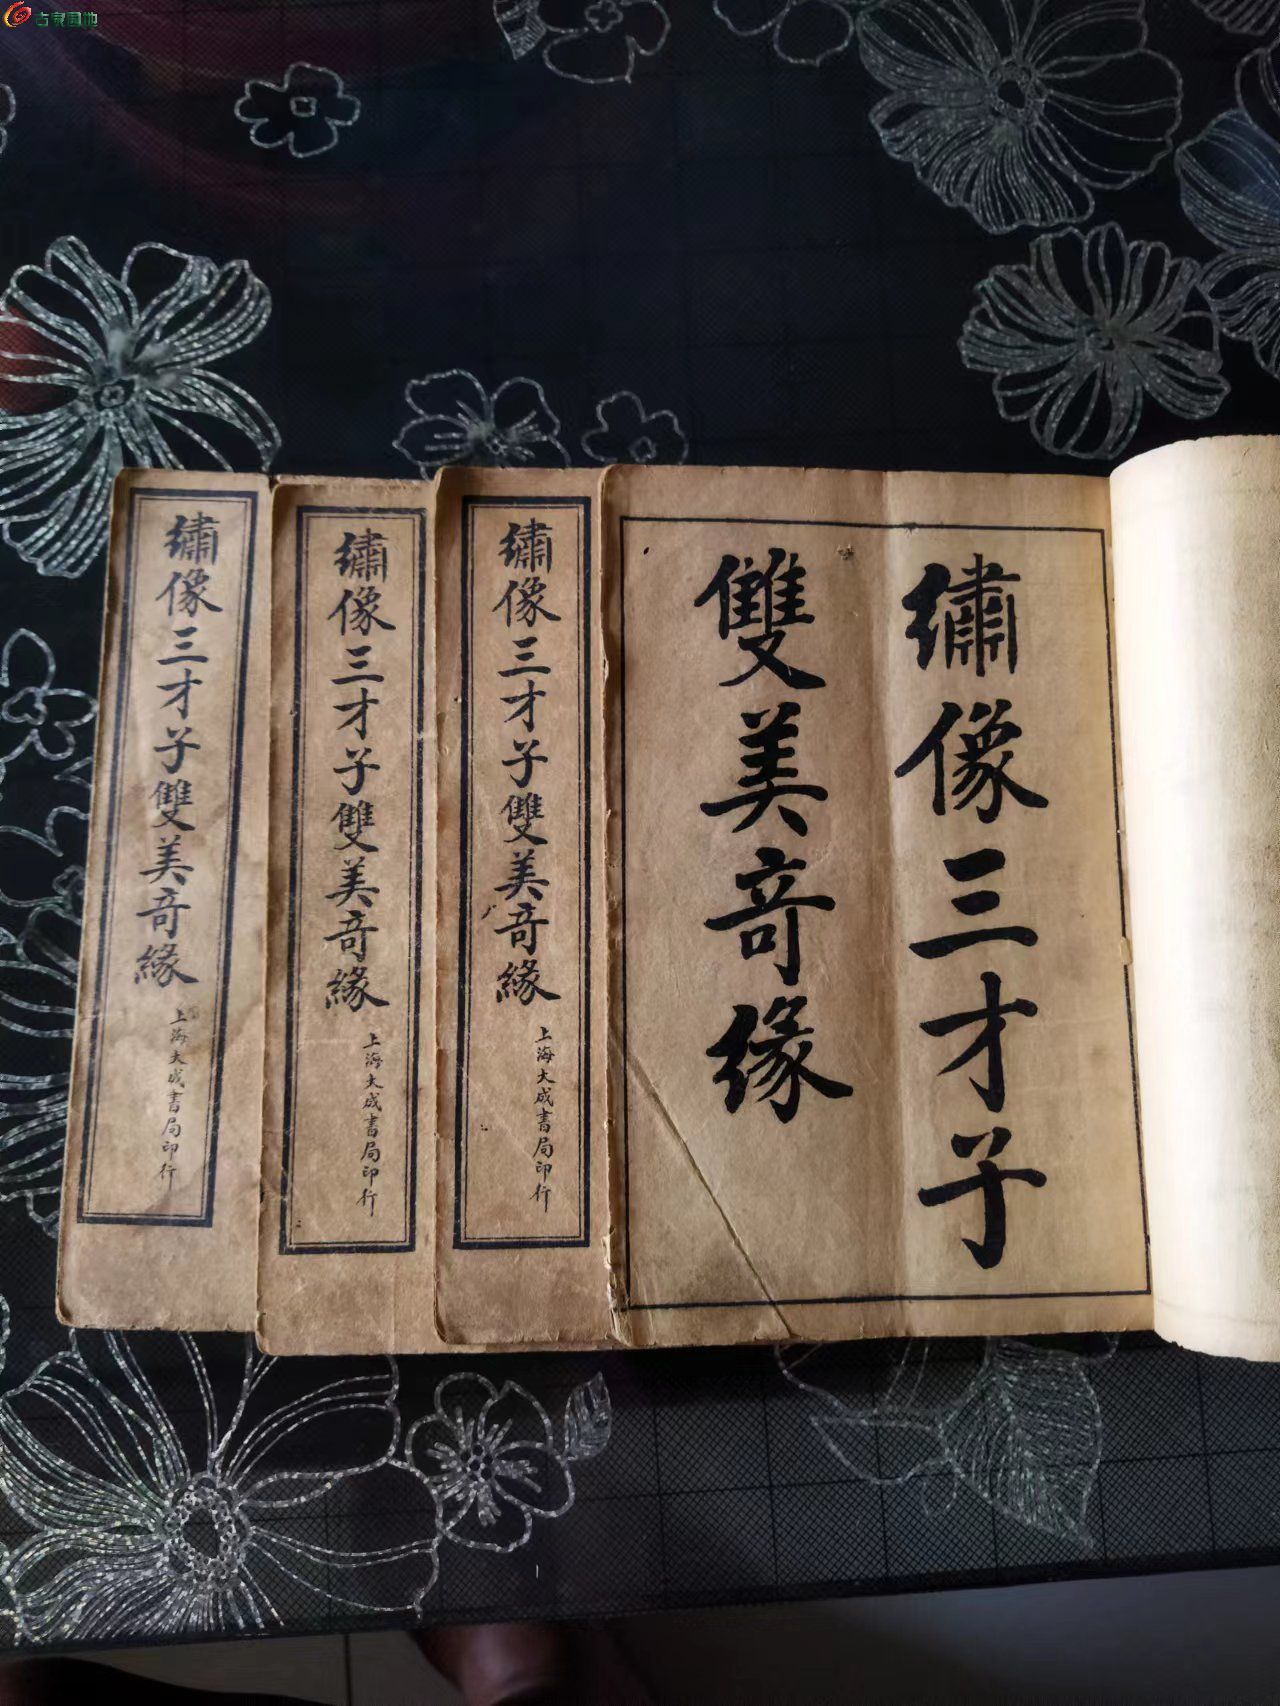 古泉园地
繡像三才子雙美奇緣
上海大成書局印行
繡像三才子雙美奇緣
上海大成書局印行
繡像三才子雙美奇緣
上海大成書局印行
繡像三才子
雙美奇緣